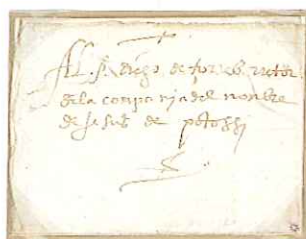 Al P. diego de torres retor
de la compania del nombre
de Jesus de potossi